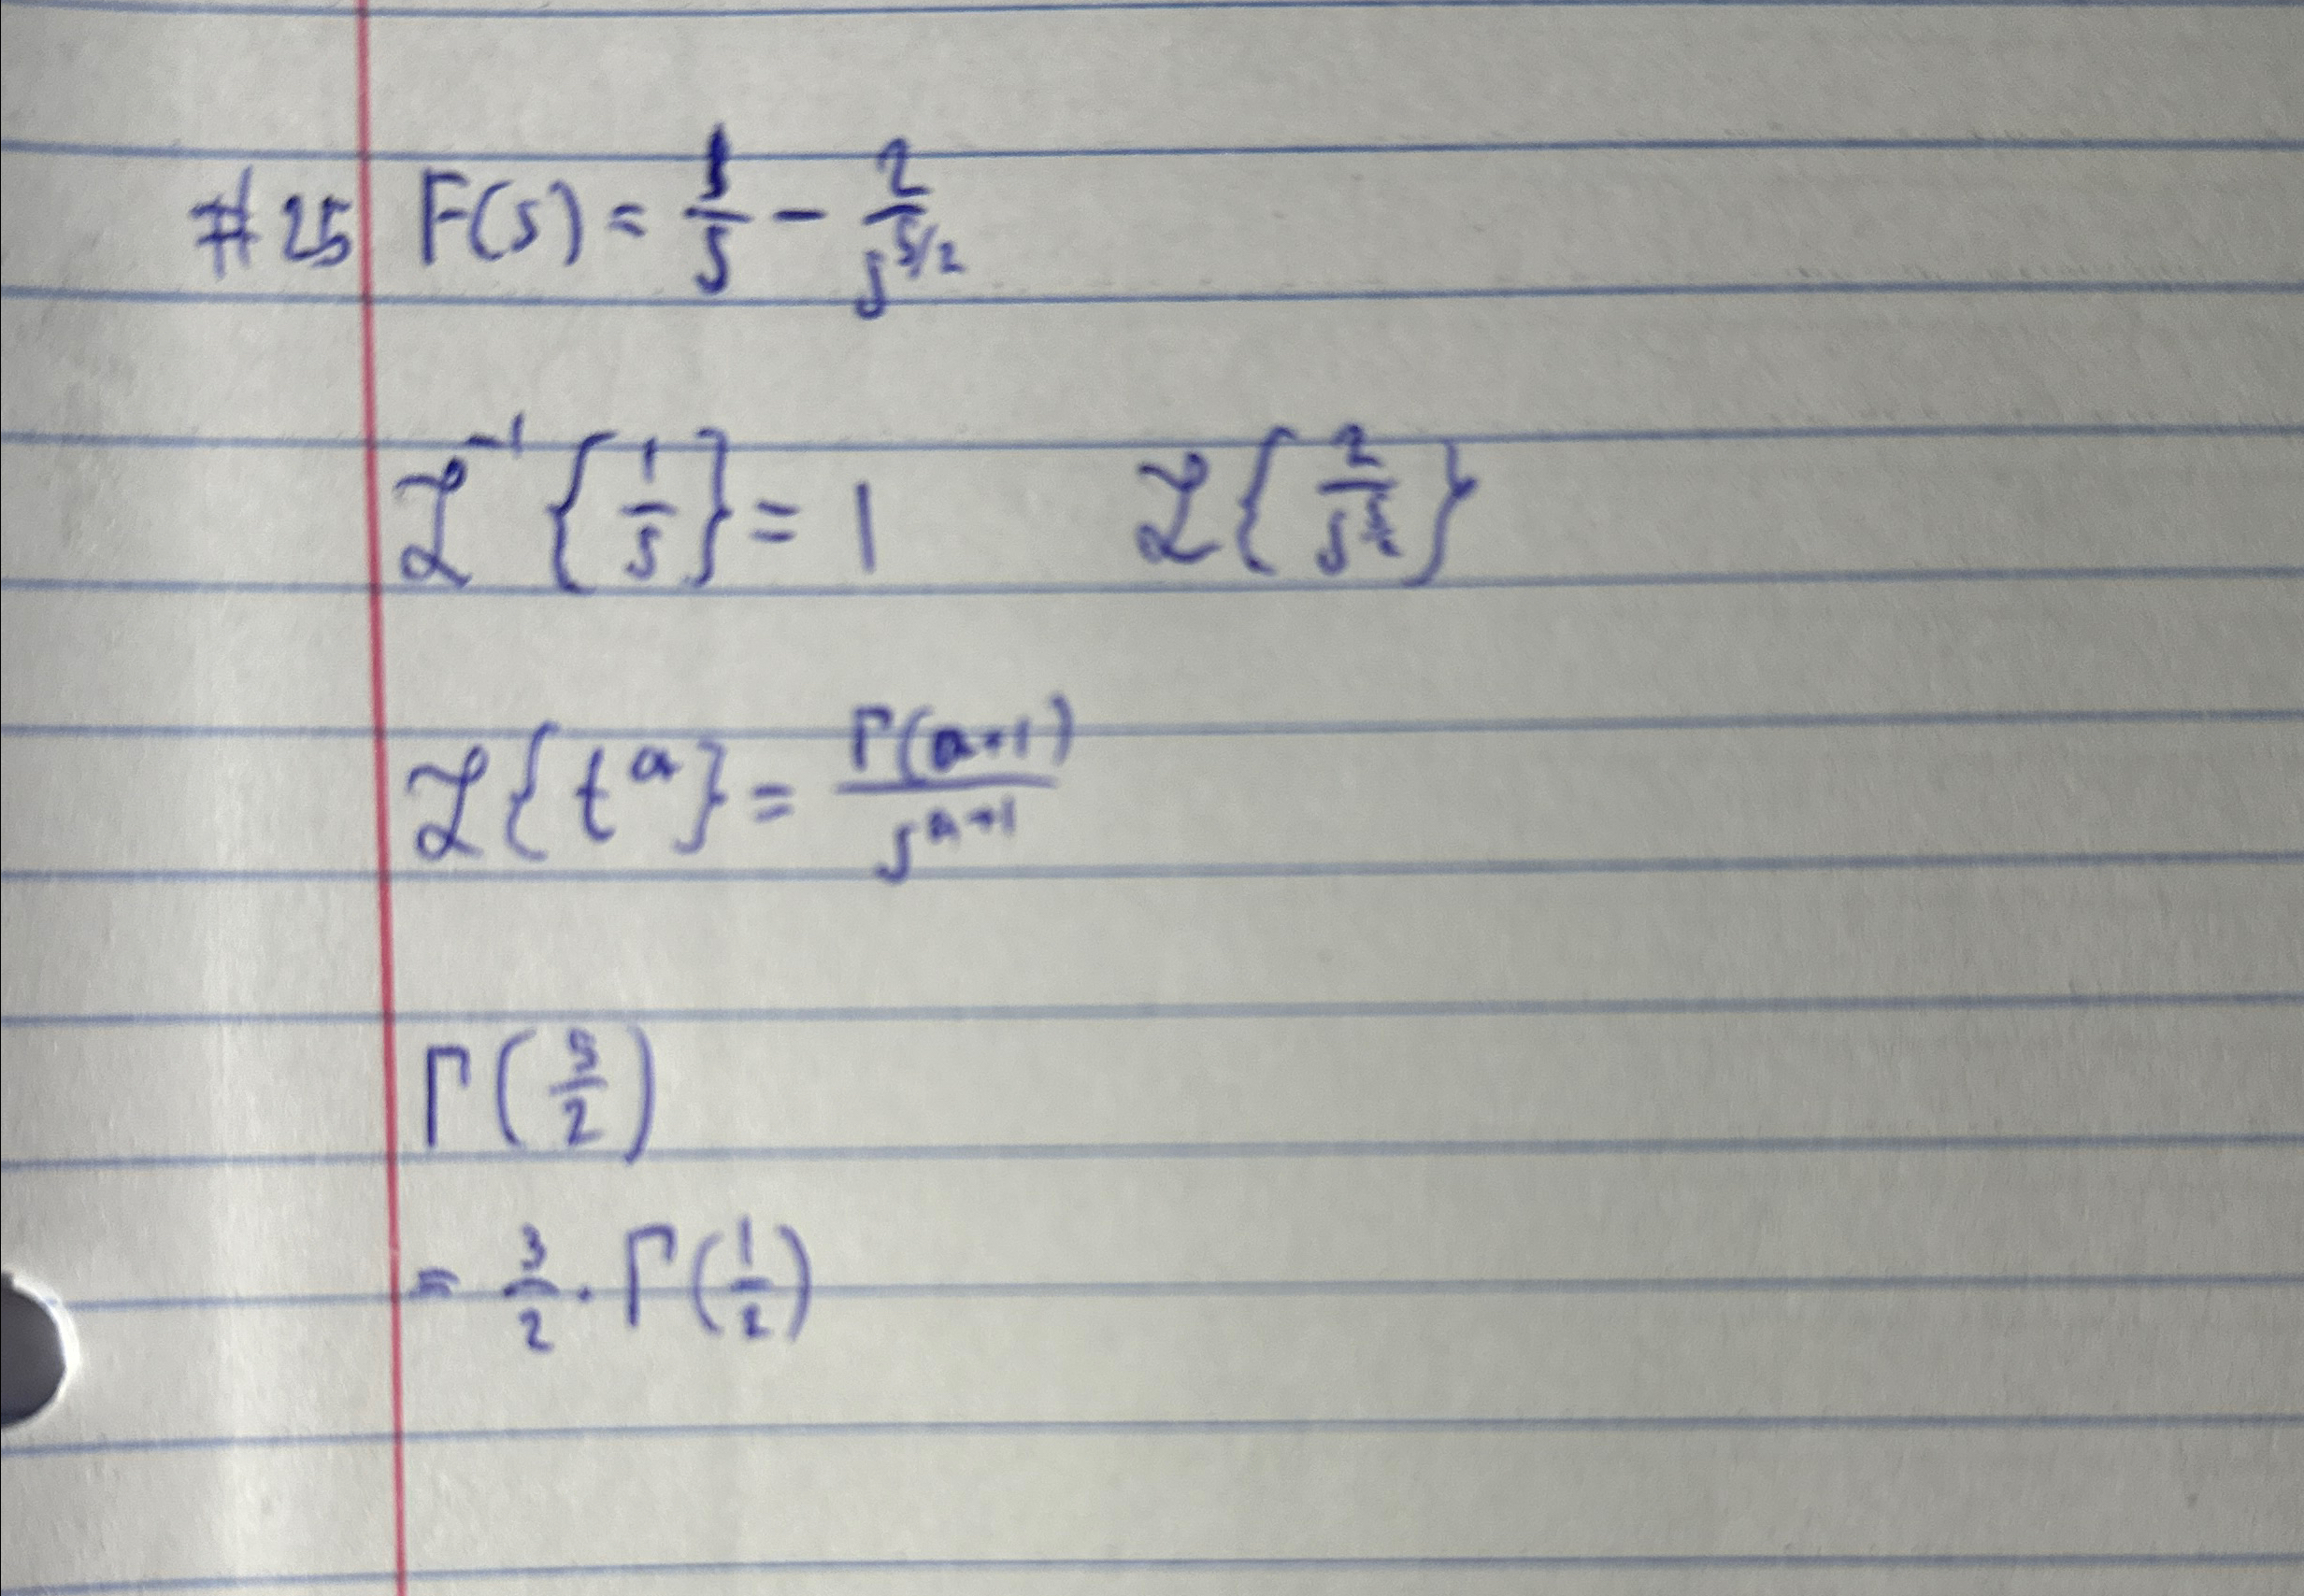 #25 F(s) = 1/s - 2/s^(5/2)
ℒ^-1 {1/s} = 1    ℒ{2/s^(5/2)}
ℒ{t^a} = Γ(a+1)/s^(a+1)
Γ(5/2)
= 3/2 · Γ(1/2)